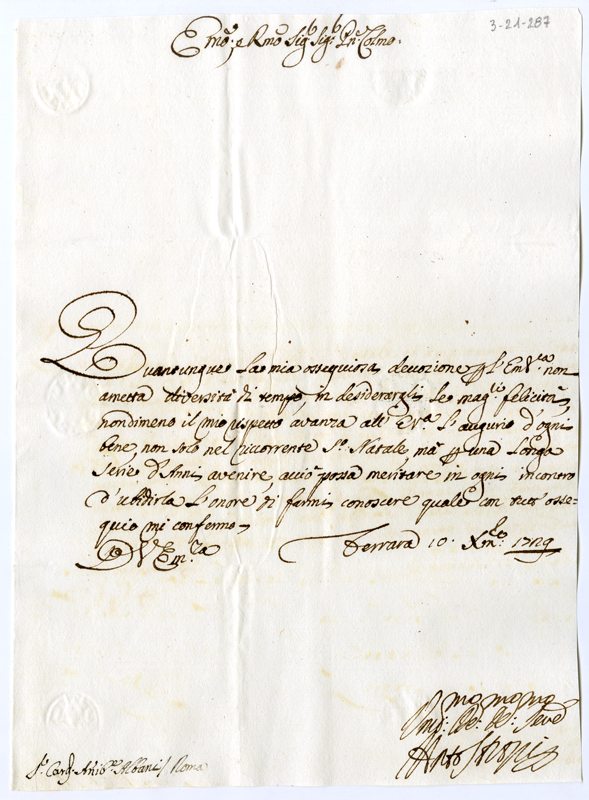 3-21-287
Emo: e Rmo Sigr Sigr Pne Colmo:
Quantunque la mia ossequiosa devozione p l'Em.V.ra non
ametta diversità di tempo, in desiderargli le magri felicità,
nondimeno il mio rispetto avanza all' E.V.ra l'augurio d'ogni
bene, non solo nel ricorrente S.o Natale, mà p una longa
serie d'Anni avenire, acciò possa meritare in ogni incontro
d'ubidirla l'onore di farmi conoscere quale con tutt'osse=
quio mi confermo
Di V. Em.za Ferrara 10. Xmbre: 1729
Umo: Devmo: Obmo: Serve
Anto
S.r Card. Anib.e Albani / Roma